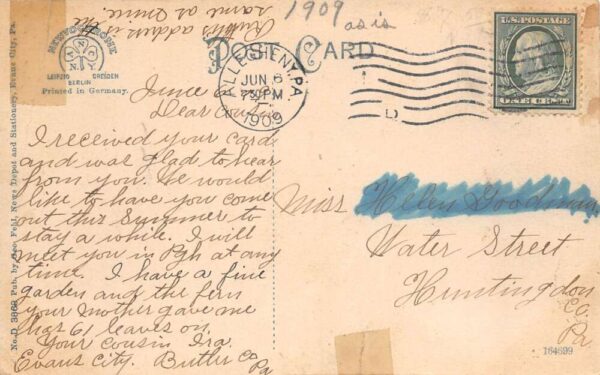 1909
as is
Ruth's address is the
same as mine.
NEWVOCHROME
A N C O
N.Y.
LEIPZIG DRESDEN
BERLIN
Printed in Germany.
POST CARD
ALLEGHENY, PA.
JUN 6
7 30 PM
1909
D
U.S. POSTAGE
ONE CENT
June 6
Dear Cousin,
I received your card
and was glad to hear
from you. We would
like to have you come
out this Summer to
stay a while. I will
meet you in Pgh at any
time. I have a fine
garden and the fern
your Mother gave me
has 61 leaves on.
Your cousin Ira.
Evans City. Butler Co
Pa
Miss Helen Goodman
Water Street
Huntingdon
Co.
Pa.
No. D 3862 Pub. by Geo. Fehl, News Depot and Stationery, Evans City, Pa.
164699